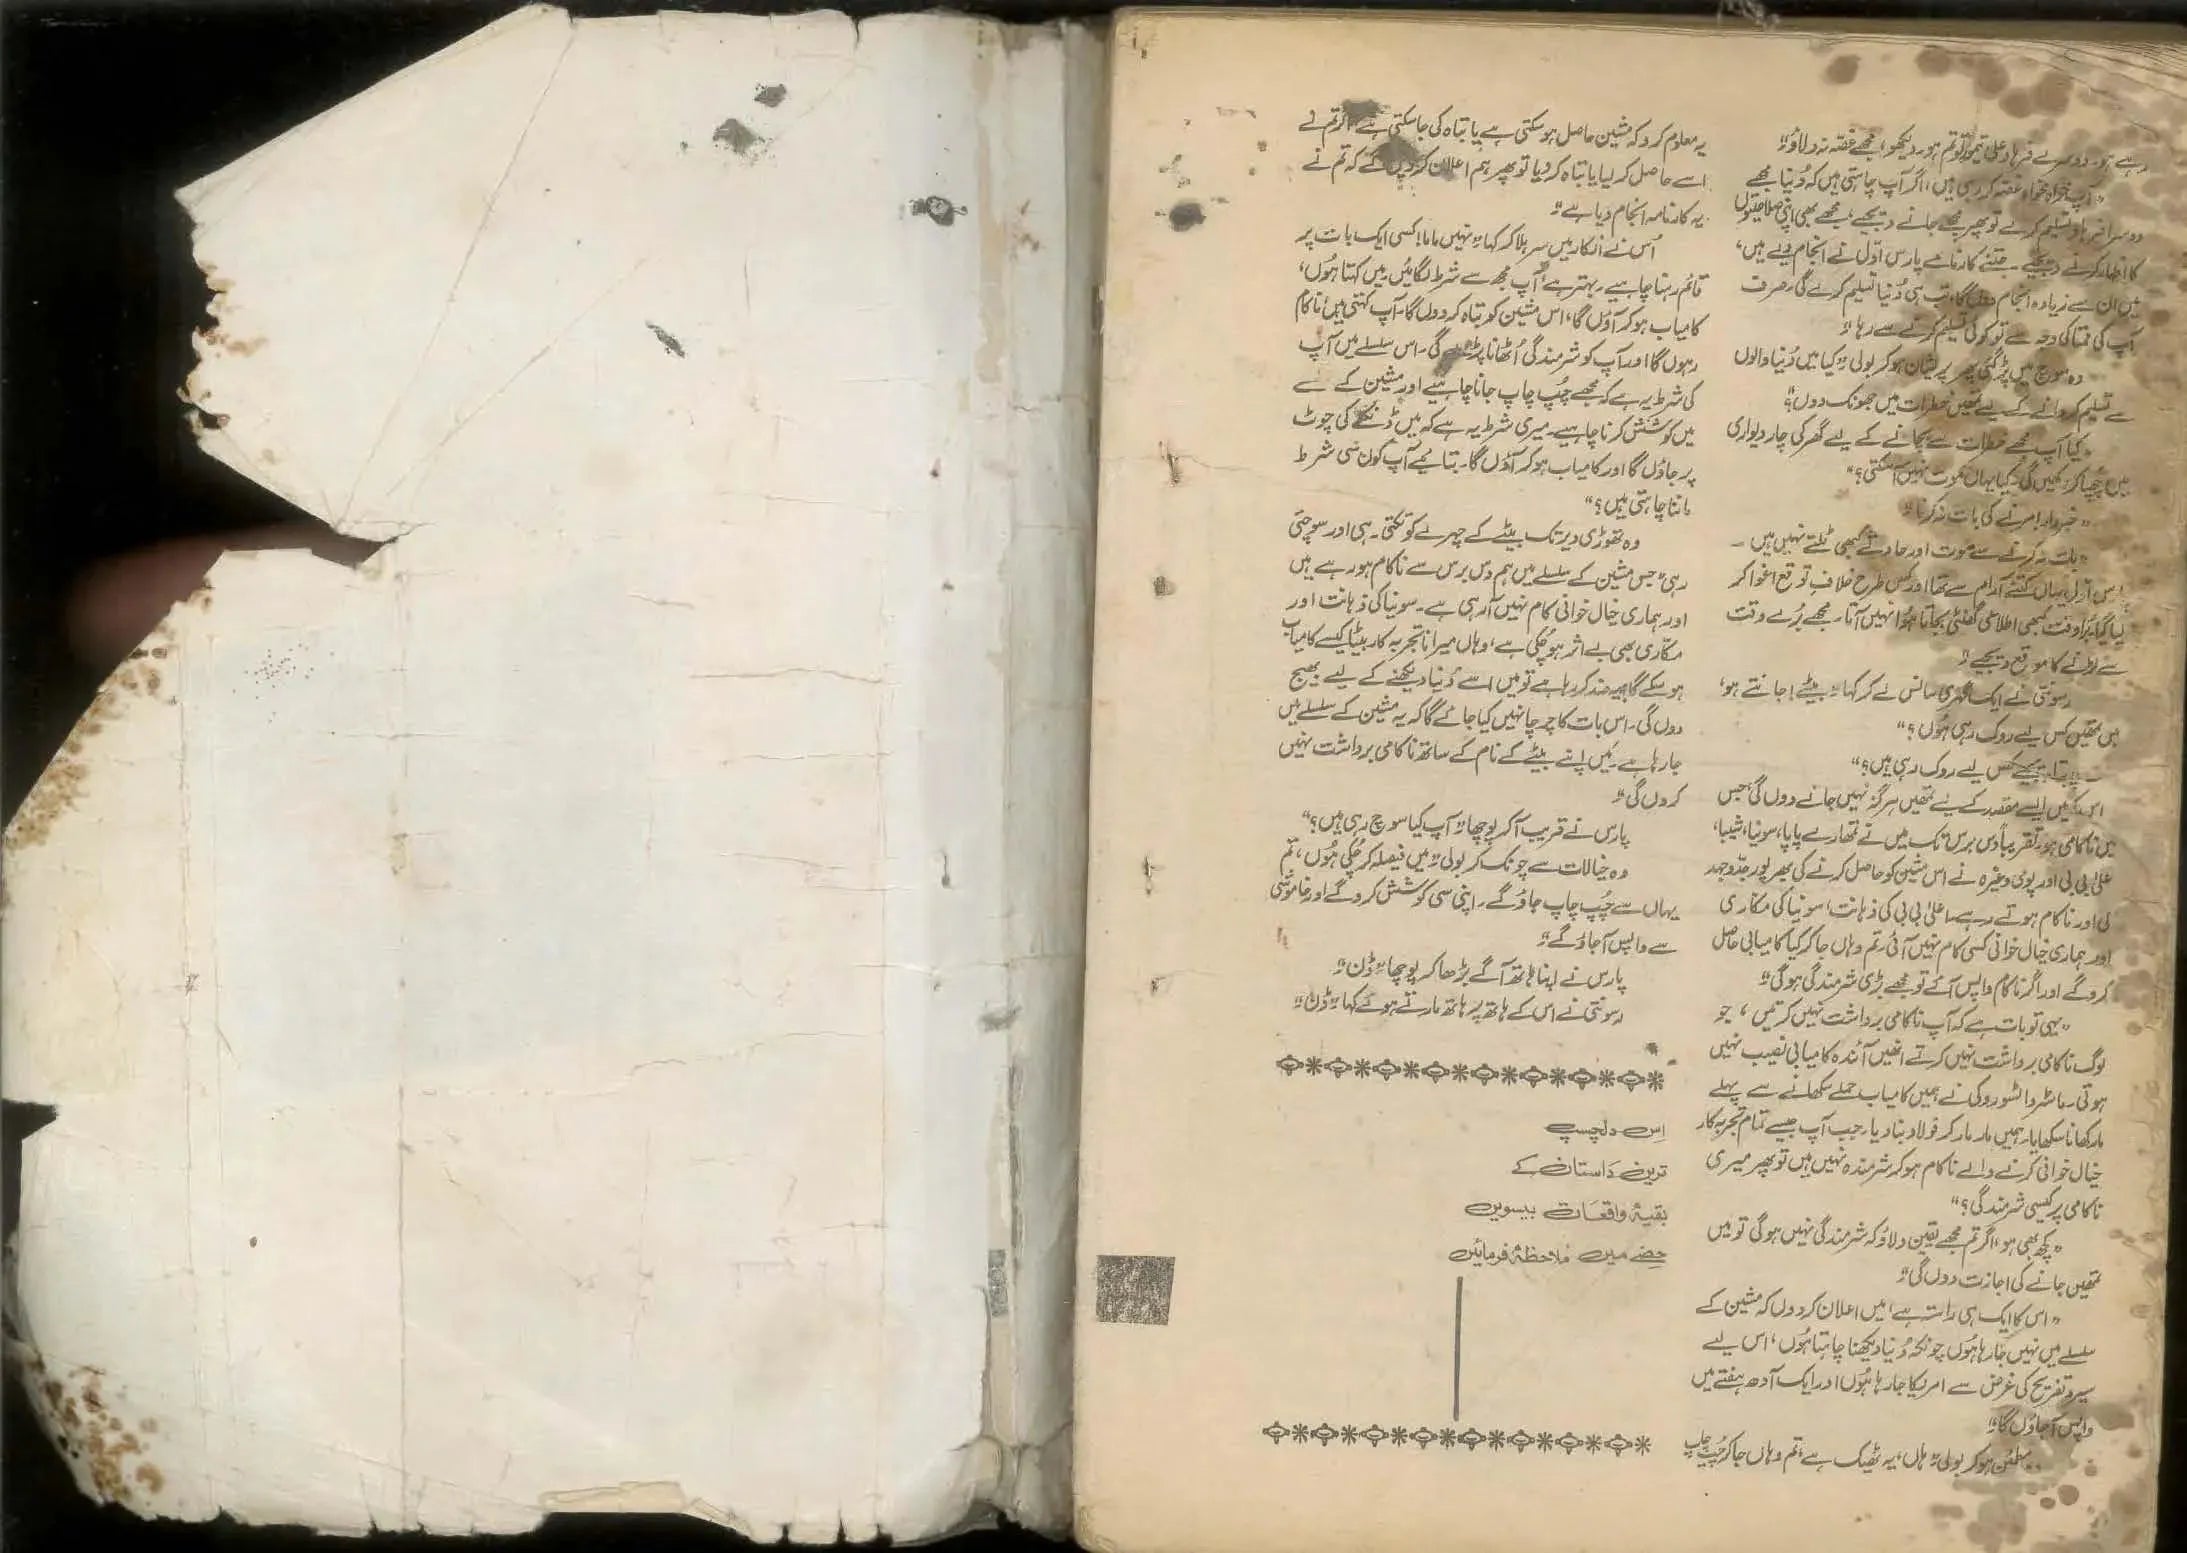 رہے ہو۔ دوسرے فرہاد علی تیمور تو تم ہو۔ دیکھو! مجھے غصہ نہ دلاؤ۔"
"آپ خواہ مخواہ غصہ کر رہی ہیں، اگر آپ چاہتی ہیں کہ دُنیا مجھے
دوسرا فرہاد تسلیم کرے تو پھر مجھے جانے دیجیے، مجھے بھی اپنی صلاحیتوں
کا اظہار کرنے دیجیے۔ جتنے کارنامے پارس اوّل نے انجام دیے ہیں،
میں ان سے زیادہ انجام دوں گا، تب ہی دُنیا تسلیم کرے گی۔ صرف
آپ کی ممتا کی وجہ سے تو کوئی تسلیم کرنے سے رہا۔"
وہ سوچ میں پڑ گئی پھر پریشان ہو کر بولی۔ "کیا میں دُنیا والوں
سے تسلیم کروانے کے لیے تمھیں خطرات میں جھونک دوں؟"
"کیا آپ مجھے خطرات سے بچانے کے لیے گھر کی چار دیواری
میں چھپا کر رکھیں گی؟ کیا یہاں موت نہیں آ سکتی؟"
"خبردار! مرنے کی بات نہ کرنا۔"
"بات نہ کرنے سے موت اور حادثے کبھی ٹلتے نہیں ہیں۔
اوّل یہاں کتنے آرام سے تھا اور کس طرح خلافِ توقع اغوا کر
لیا گیا۔ بُرا وقت کبھی اطلاعی گھنٹی بجاتا ہُوا نہیں آتا۔ مجھے بُرے وقت
سے لڑنے کا موقع دیجیے۔"
رسونتی نے ایک گہری سانس لے کر کہا۔ "بیٹے! جانتے ہو،
میں تمھیں کس لیے روک رہی ہُوں؟"
کس لیے روک رہی ہیں؟"
ایسے مقصد کے لیے تمھیں ہرگز نہیں جانے دوں گی، جس
میں ناکامی ہو۔ تقریباً دس برس تک میں نے تمھارے پاپا، سونیا، شیبا،
اعلیٰ بی بی اور پومی وغیرہ نے اس مشین کو حاصل کرنے کی بھرپور جدّوجہد
کی اور ناکام ہوتے رہے۔ اعلیٰ بی بی کی ذہانت، سونیا کی مکاری
اور ہماری خیال خوانی کسی کام نہیں آئی۔ تم وہاں جا کر کیا کامیابی حاصل
کرو گے اور اگر ناکام واپس آئے تو مجھے بڑی شرمندگی ہوگی۔"
"یہی تو بات ہے کہ آپ ناکامی برداشت نہیں کرتیں، جو
لوگ ناکامی برداشت نہیں کرتے انھیں آئندہ کامیابی نصیب نہیں
ہوتی۔ ماسٹر واتشوروکی نے ہمیں کامیاب حملے سکھانے سے پہلے
مار کھانا سکھایا۔ ہمیں مار مار کر فولاد بنا دیا۔ جب آپ جیسے تمام تجربہ کار
خیال خوانی کرنے والے ناکام ہو کر شرمندہ نہیں ہیں تو پھر میری
ناکامی پر کیسی شرمندگی؟"
"کچھ بھی ہو، اگر تم مجھے یقین دلاؤ کہ شرمندگی نہیں ہوگی تو میں
تمھیں جانے کی اجازت دوں گی۔"
"اس کا ایک ہی راستہ ہے، میں اعلان کردوں کہ مشین کے
سلسلے میں نہیں جا رہا ہُوں۔ چونکہ دُنیا دیکھنا چاہتا ہُوں، اس لیے
سیر و تفریح کی غرض سے امریکا جا رہا ہُوں اور ایک آدھ ہفتے میں
واپس آ جاؤں گا۔"
مطمئن ہو کر بولی۔ "ہاں، یہ ٹھیک ہے، تم وہاں جا کر چُپ چاپ
یہ معلوم کرو کہ مشین حاصل ہو سکتی ہے یا تباہ کی جا سکتی ہے۔ اگر تم نے
اسے حاصل کر لیا یا تباہ کر دیا تو پھر ہم اعلان کر دیں گے کہ تم نے
یہ کارنامہ انجام دیا ہے۔"
اُس نے انکار میں سر ہلا کر کہا۔ "نہیں ماما! کسی ایک بات پر
قائم رہنا چاہیے۔ بہتر ہے، آپ مجھ سے شرط لگائیں۔ میں کہتا ہُوں،
کامیاب ہو کر آؤں گا، اس مشین کو تباہ کر دوں گا۔ آپ کہتی ہیں، ناکام
رہوں گا اور آپ کو شرمندگی اُٹھانا پڑے گی۔ اس سلسلے میں آپ
کی شرط یہ ہے کہ مجھے چُپ چاپ جانا چاہیے اور مشین کے لیے
میں کوشش کرنا چاہیے۔ میری شرط یہ ہے کہ میں ڈنکے کی چوٹ
پر جاؤں گا اور کامیاب ہو کر آؤں گا۔ بتائیے آپ کون سی شرط
ماننا چاہتی ہیں؟"
وہ تھوڑی دیر تک بیٹے کے چہرے کو تکتی رہی اور سوچتی
رہی "جس مشین کے سلسلے میں ہم دس برس سے ناکام ہو رہے ہیں
اور ہماری خیال خوانی کام نہیں آ رہی ہے۔ سونیا کی ذہانت اور
مکاری بھی بے اثر ہو چُکی ہے، وہاں میرا ناتجربہ کار بیٹا کیسے کامیاب
ہو سکے گا؟ یہ ضد کر رہا ہے تو میں اسے دُنیا دیکھنے کے لیے بھیج
دوں گی۔ اس بات کا چرچا نہیں کیا جائے گا کہ یہ مشین کے سلسلے میں
جا رہا ہے۔ میں اپنے بیٹے کے نام کے ساتھ ناکامی برداشت نہیں
کروں گی۔"
پارس نے قریب آ کر پوچھا۔ "آپ کیا سوچ رہی ہیں؟"
وہ خیالات سے چونک کر بولی۔ "میں فیصلہ کر چُکی ہُوں، تم
یہاں سے چُپ چاپ جاؤ گے۔ اپنی سی کوشش کرو گے اور خاموشی
سے واپس آ جاؤ گے۔"
پارس نے اپنا ہاتھ آگے بڑھا کر پوچھا۔ "ڈن۔"
رسونتی نے اس کے ہاتھ پر ہاتھ مارتے ہوئے کہا۔ "ڈن۔"
اِس دلچسپ
ترین داستان کے
بقیہ واقعات بیسویں
حصّے میں ملاحظہ فرمائیں